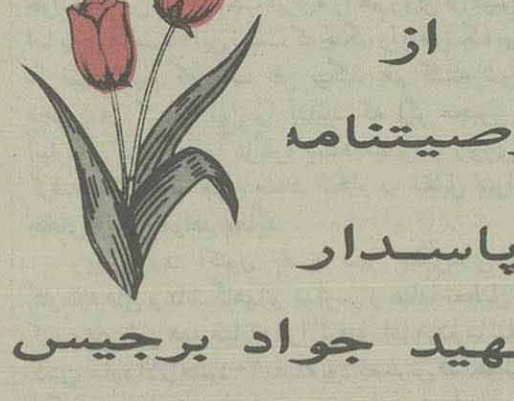 از
وصیتنامه
پاسدار
شهید جواد برجیس